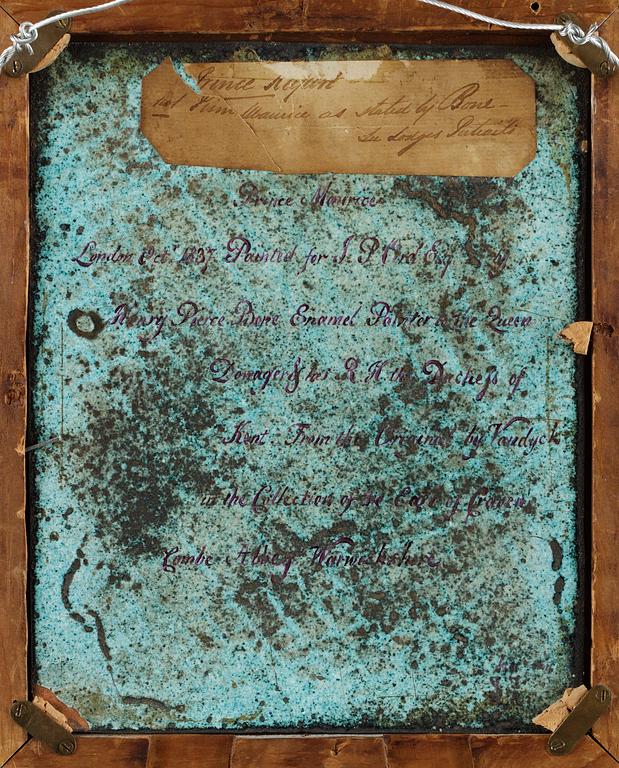 Prince Rupert
not Prin Maurice as stated by Bone —
See Lodges Portraits
Prince Maurice
London Octr 1837 Painted for J. P. Ord Esqr by
Henry Pierce Bone Enamel Painter to the Queen
Dowager & her R H the Duchess of
Kent. From the Original by Vandyck
in the Collection of the Earl of Craven
Combe Abbey Warwickshire